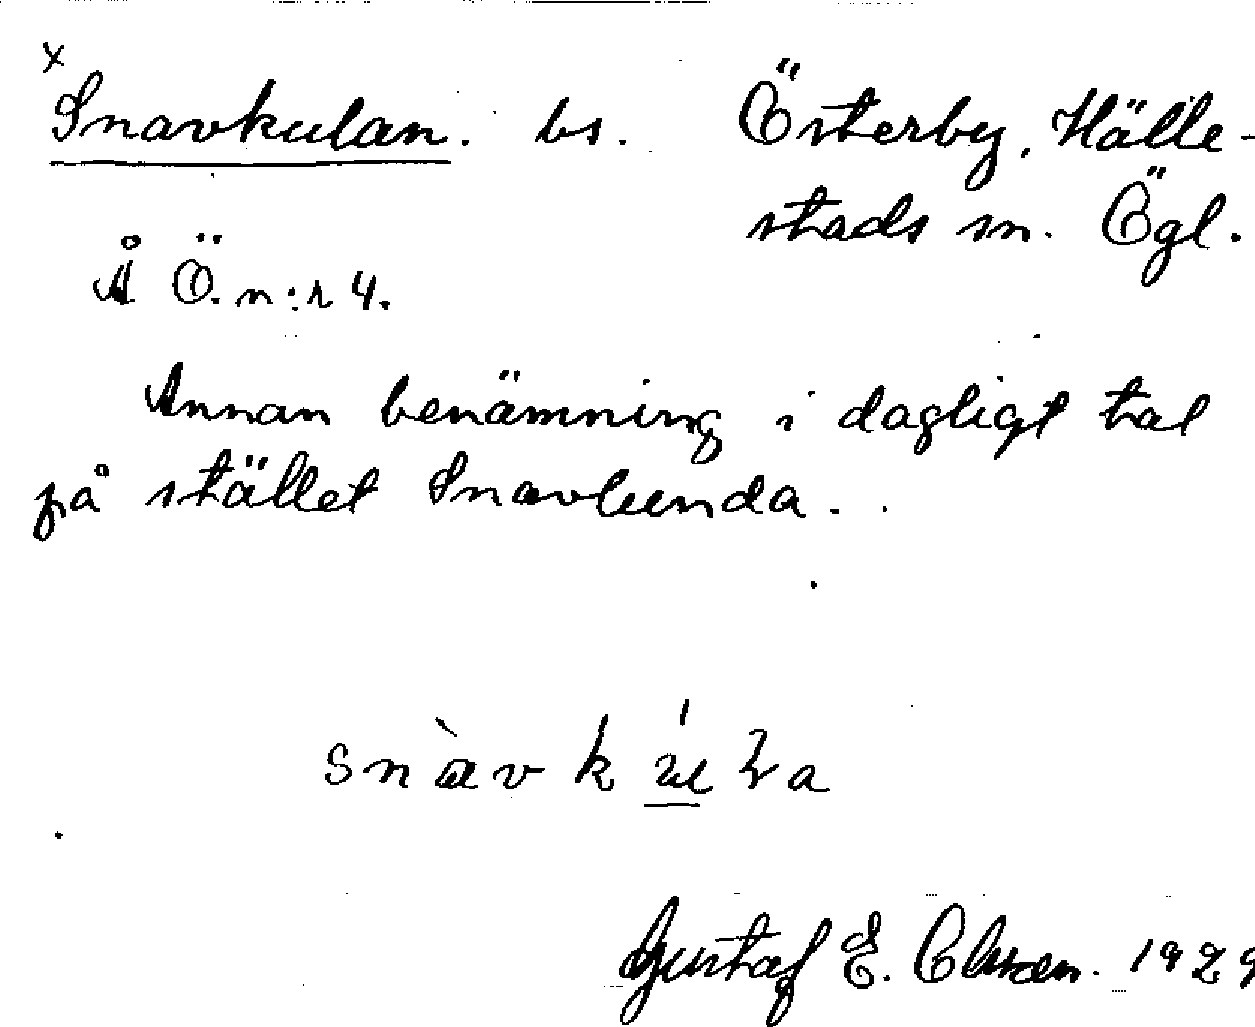 x
Snavkulan. bs. Österby, Hälle-
stads sn. Ögl.
Å Ö. n:r 4.
Annan benämning i dagligt tal
på stället Snavlunda.
Gustaf E. Olsson. 1929